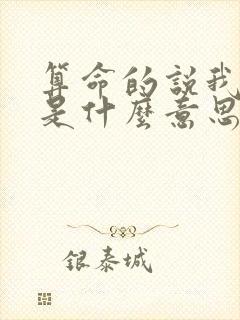 算命的説我
是什麼意思
银泰城